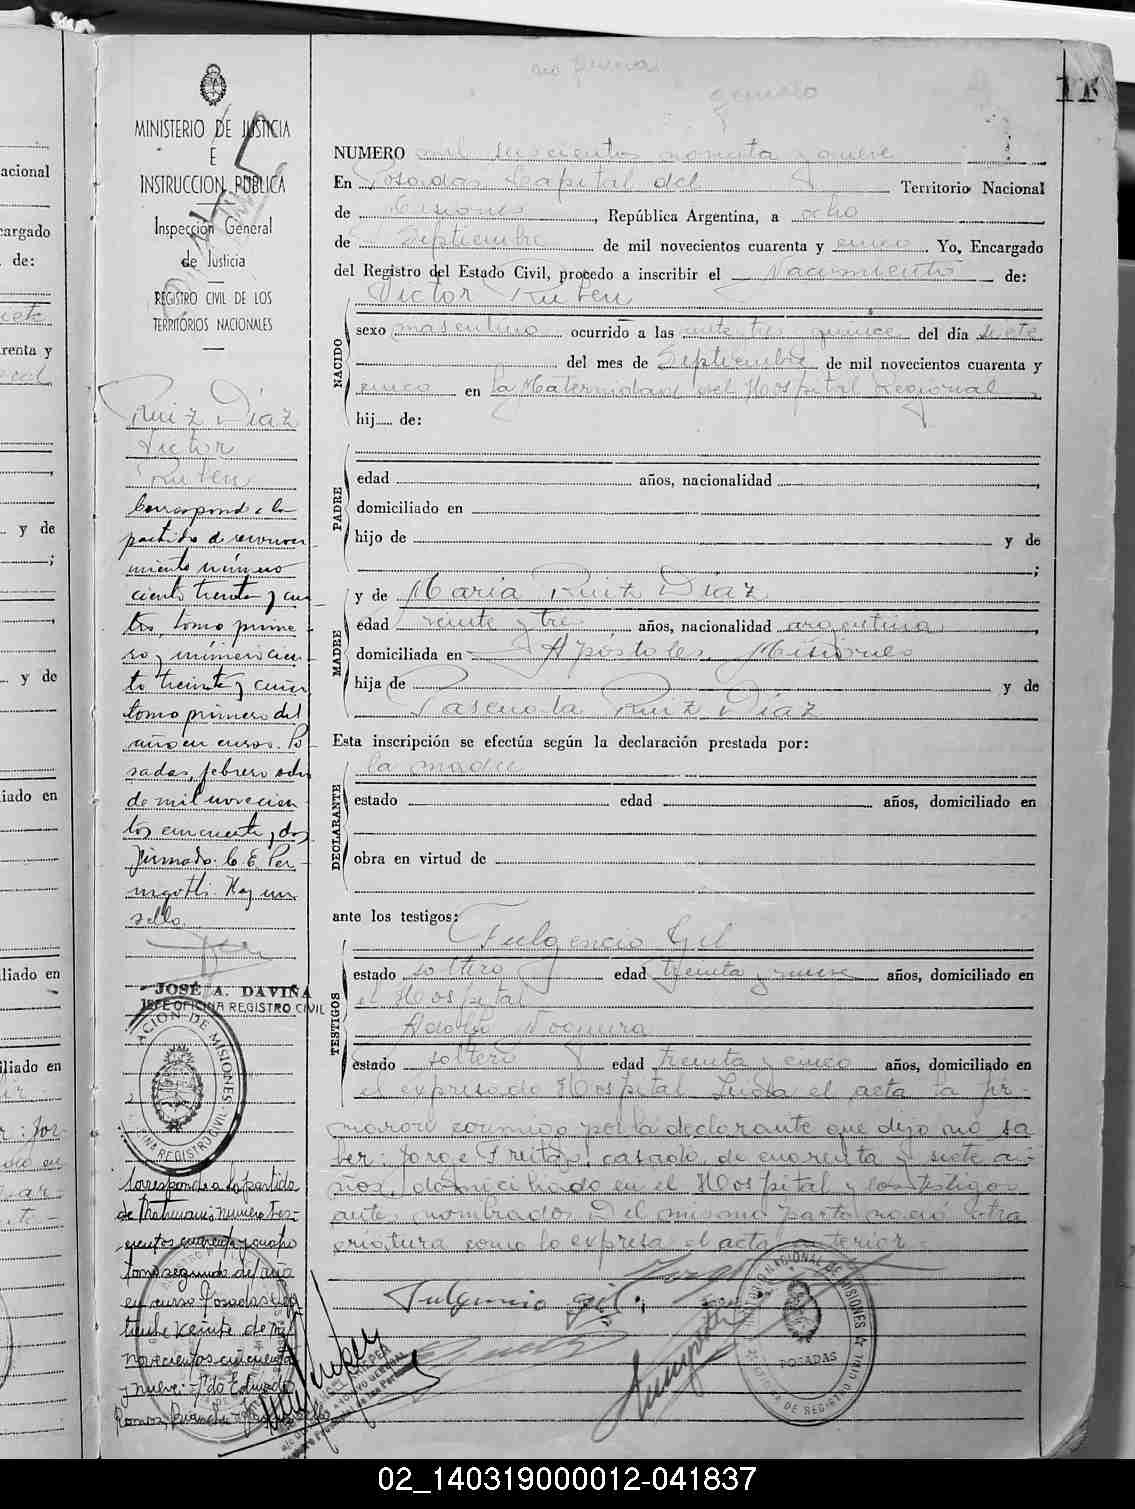 no
gemelo
MINISTERIO DE JUSTICIA
E
INSTRUCCION PUBLICA
Inspección General
de Justicia
REGISTRO CIVIL DE LOS
TERRITORIOS NACIONALES
Ruiz Díaz
Victor
Ruben
Corresponde a la
partida de reconoci
miento número
ciento treinta y cua
tro, tomo prime
ro y número cien
to treinta y cinco
tomo primero del
año en curso. Po
sadas, febrero ocho
de mil novecien
tos cincuenta y dos
Firmado. C. E. Per
ugotti. Hay un
sello.
JOSÉ A. DAVIÑA
JEFE OFICINA REGISTRO CIVIL
Corresponde a la partida
de Matrimonio número tres
cientos cuarenta y cuatro
tomo segundo del año
en curso Posadas
veinte de mil
novecientos cincuenta
y nueve
NUMERO mil seiscientos noventa y nueve
En Posadas Capital del Territorio Nacional
de Misiones, República Argentina, a ocho
de Septiembre de mil novecientos cuarenta y cinco Yo, Encargado
del Registro del Estado Civil, procedo a inscribir el Nacimiento de:
NACIDO
Victor Ruben
sexo masculino ocurrido a las veintetres quince del día siete
del mes de Septiembre de mil novecientos cuarenta y
cinco en la Maternidad del Hospital Regional,
hij de:
PADRE
edad años, nacionalidad ,
domiciliado en
hijo de y de
;
MADRE
y de María Ruiz Díaz
edad veinte y tres años, nacionalidad argentina,
domiciliada en Apóstoles, Misiones
hija de y de
Pascuala Ruiz Díaz
Esta inscripción se efectúa según la declaración prestada por:
DECLARANTE
la madre
estado edad años, domiciliado en
obra en virtud de
ante los testigos:
TESTIGOS
Fulgencio Gil
estado soltero edad treinta y nueve años, domiciliado en
el Hospital
Adolfo Noguera
estado soltero edad treinta y cinco años, domiciliado en
el expresado Hospital Leída el acta la fir-
maron conmigo por la declarante que dijo no sa
ber: Jorge Freitas, casado, de cuarenta y siete a-
ños, domiciliado en el Hospital y los testigos
antes nombrados. Del mismo parto nació otra
criatura como lo expresa el acta anterior
Jorge
Fulgencio Gil
REGISTRO NACIONAL DE MISIONES
POSADAS
OFICINA DE REGISTRO CIVIL
02_140319000012-041837